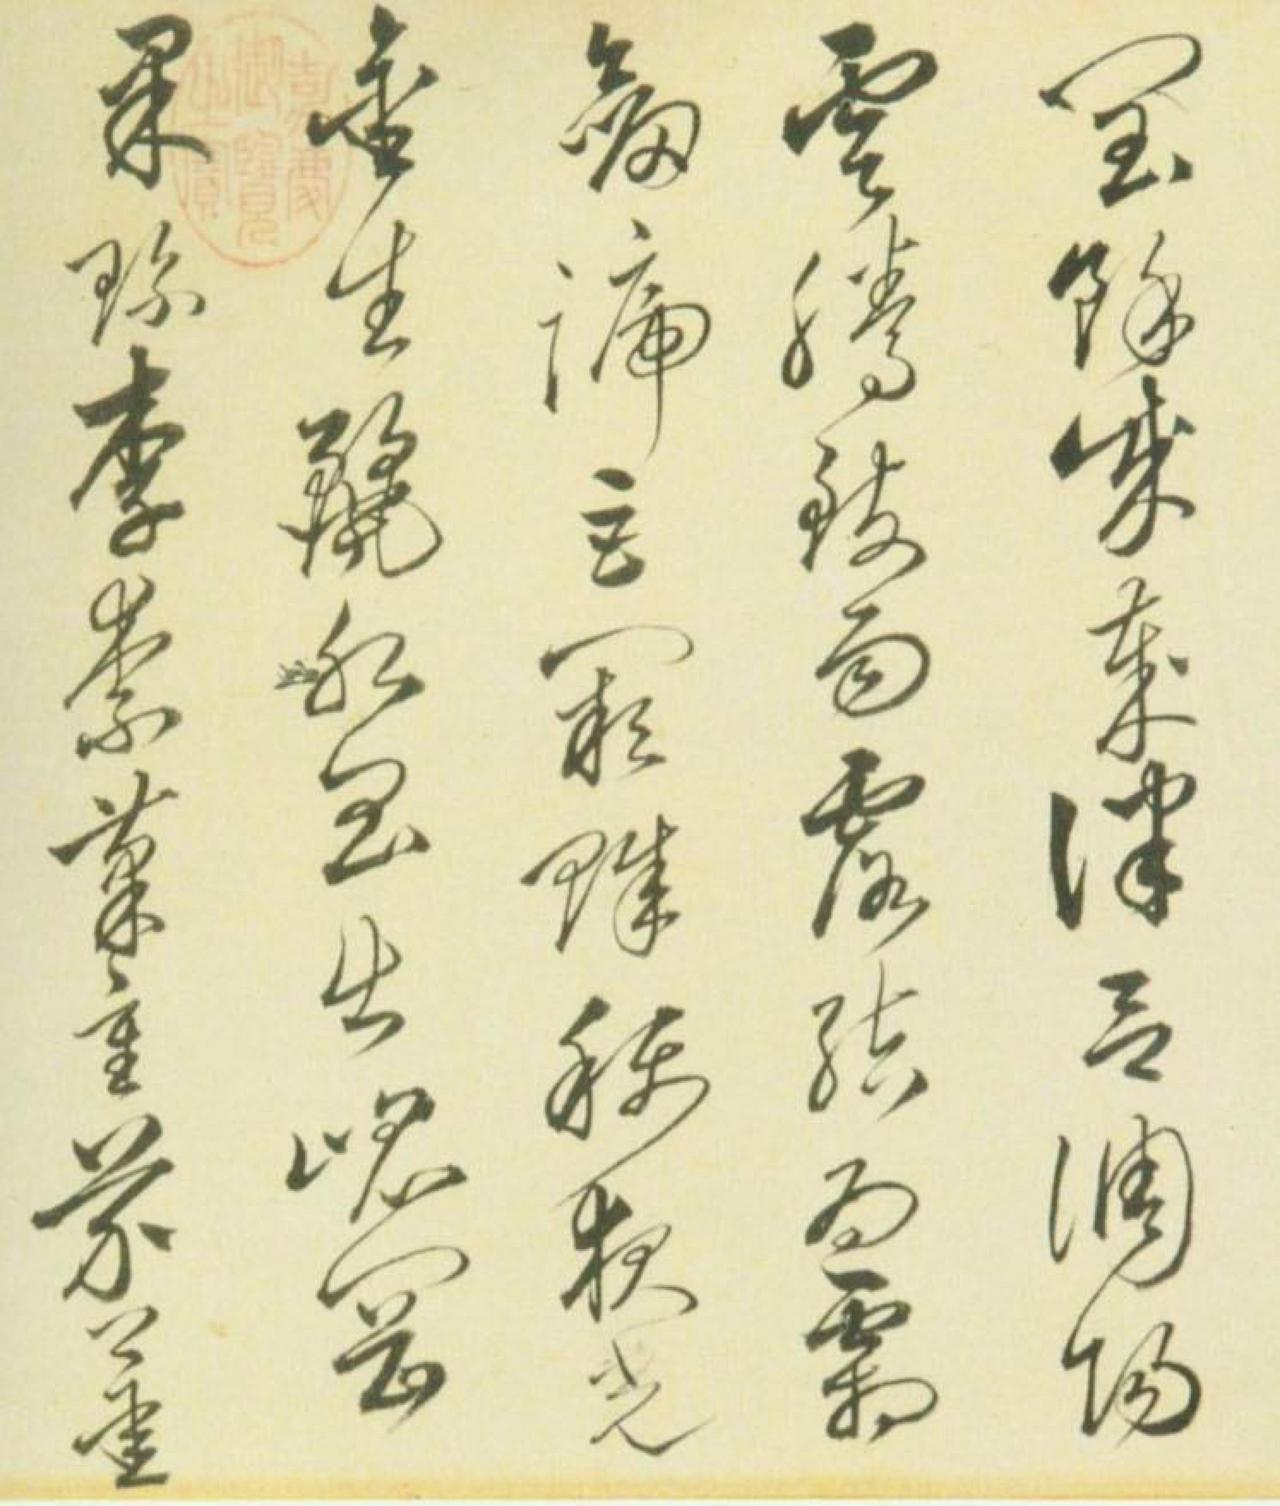 閏餘成歲律呂調陽
雲騰致雨露結為霜
劍號巨闕珠稱夜光
金生麗水玉出崑岡
果珍李柰菜重芥薑
嘉慶御覽之寶